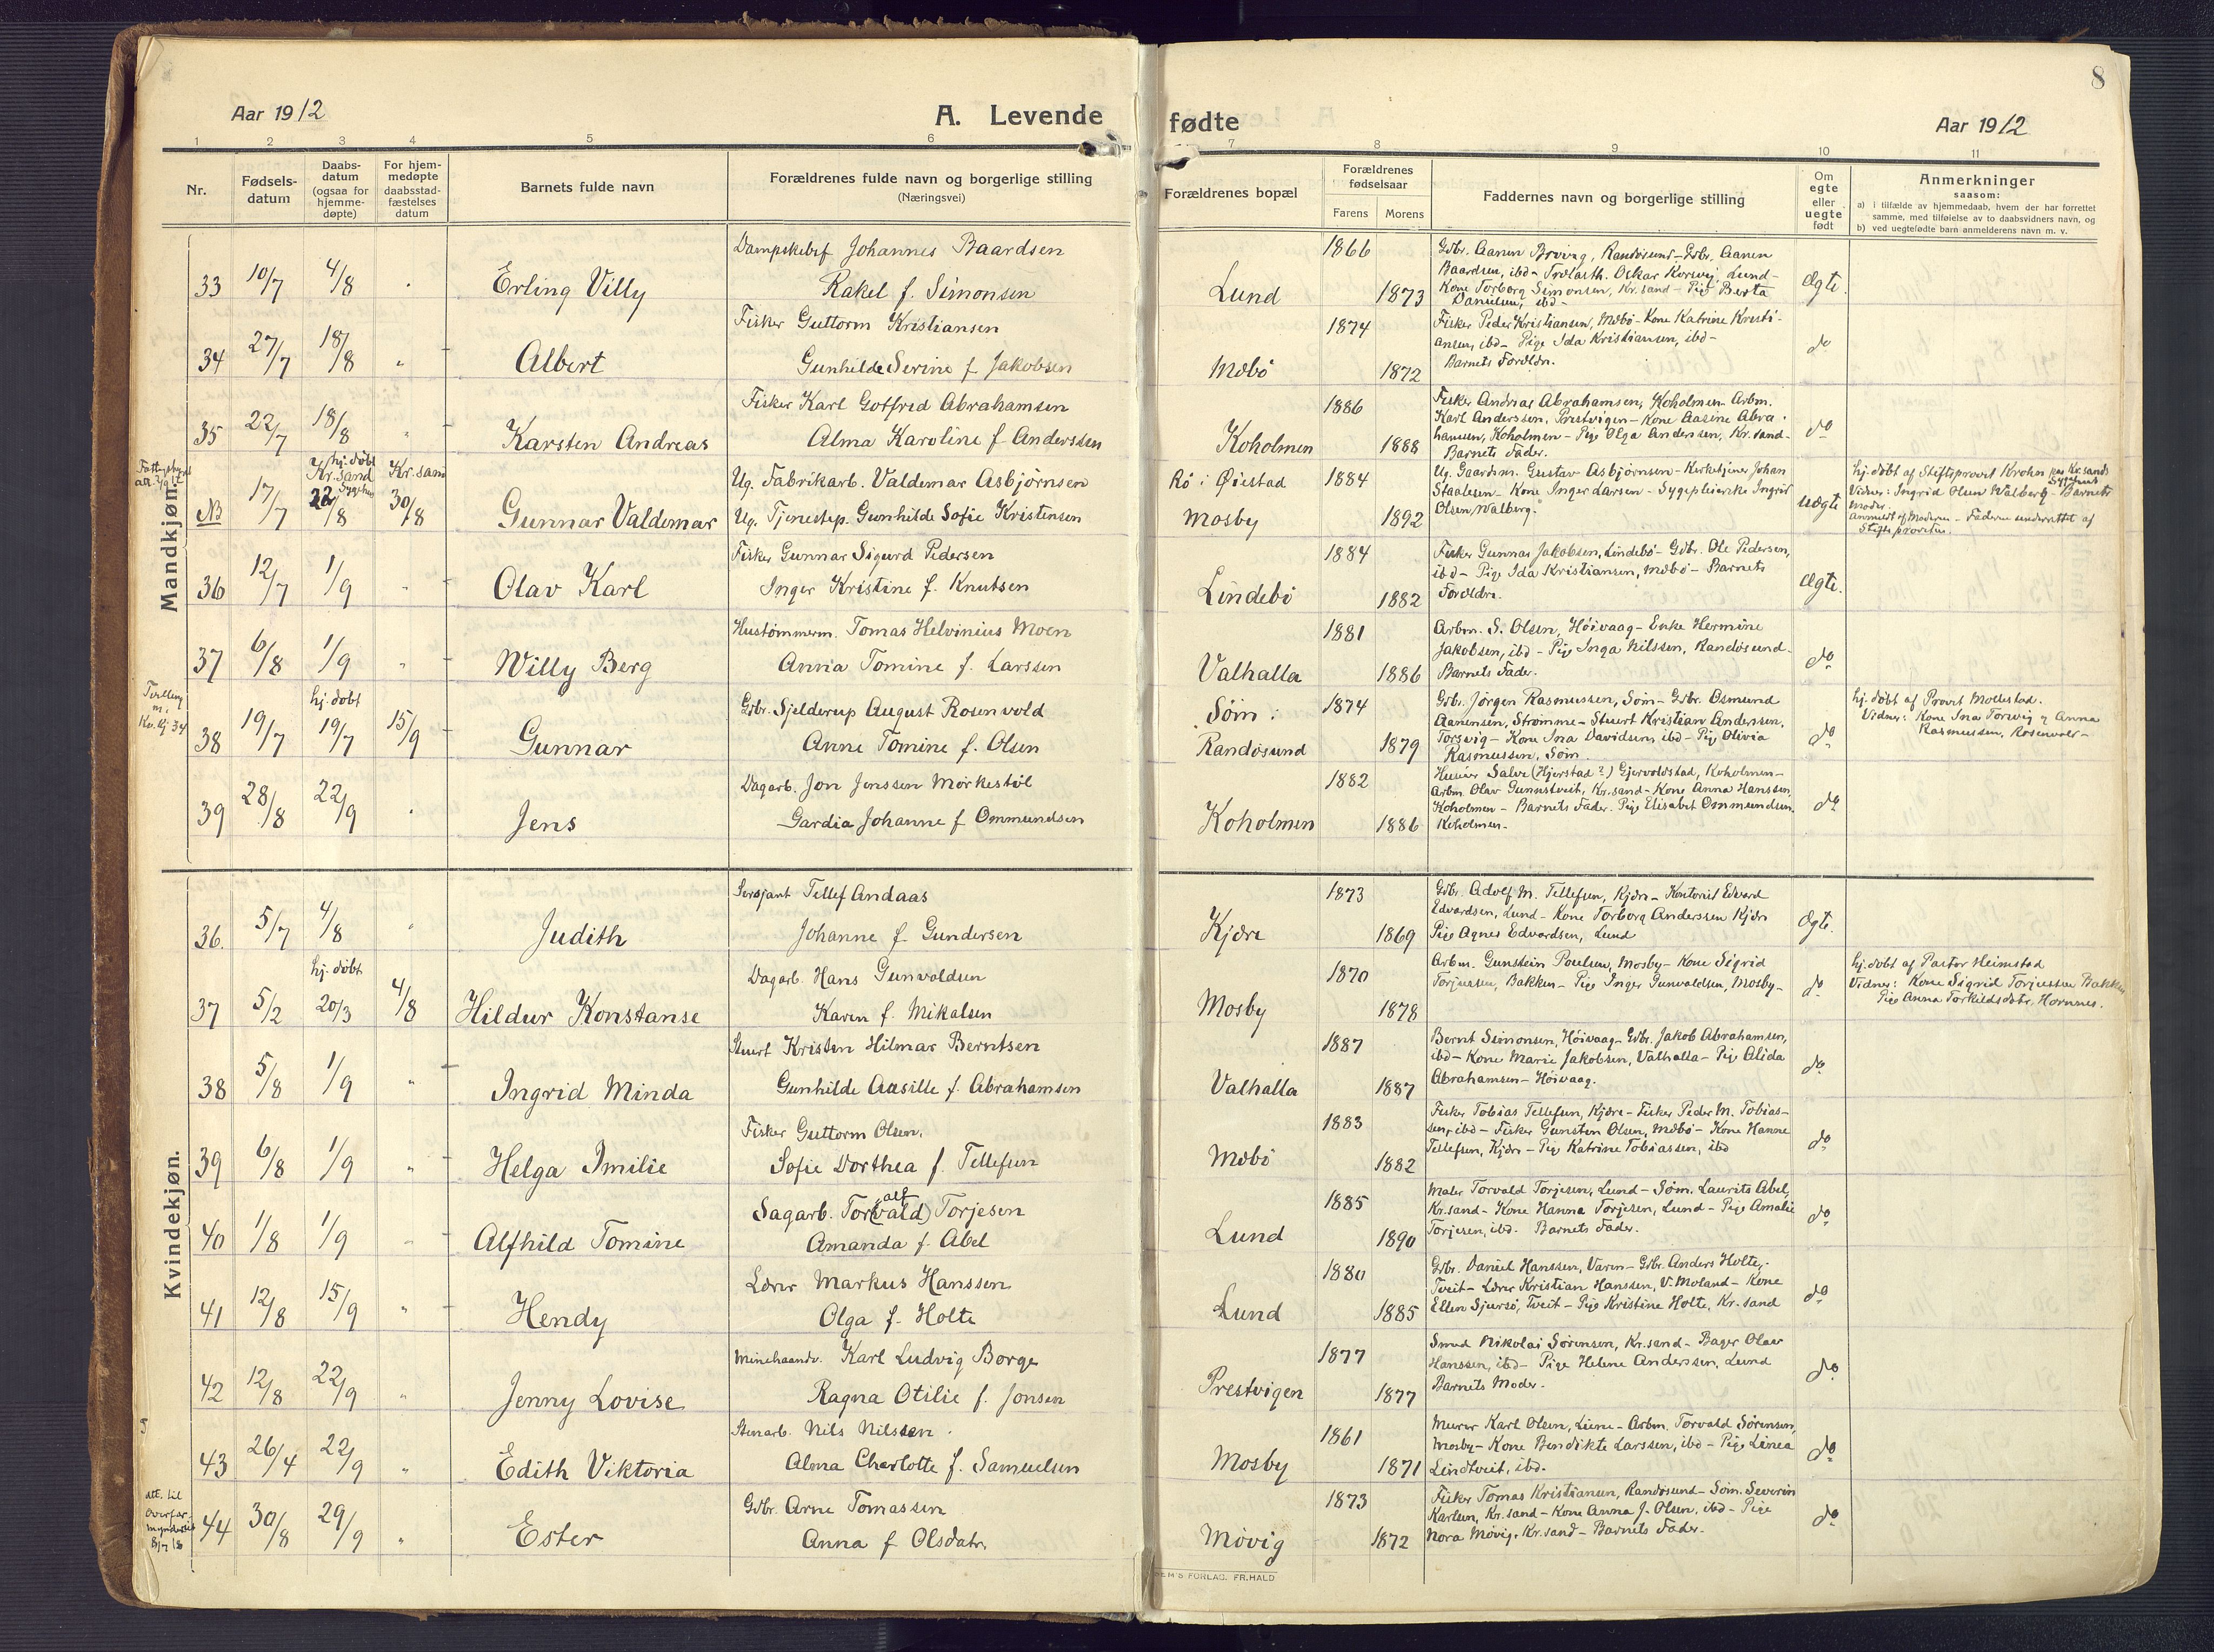 8
Aar 1912
A. Levende fødte
Aar 1912
1 2 3 4 5 6 7 8 9 10 11
Nr.
Fødsels-
datum
Daabs-
datum
(ogsaa for
hjemme-
døpte)
For hjem-
medøpte
daabsstad-
fæstelses
datum
Barnets fulde navn
Forældrenes fulde navn og borgerlige stilling
(Næringsvei)
Forældrenes bopæl
Forældrenes
fødselsaar
Farens Morens
Faddernes navn og borgerlige stilling
Om
egte
eller
uegte
født
Anmerkninger
saasom:
a) i tilfælde av hjemmedaab, hvem der har forrettet
samme, med tilføielse av to daabsvidners navn, og
b) ved uegtefødte barn anmelderens navn m. v.
Mandkjøn.
33 10/7 4/8 Erling Villy
Dampskebsf Johannes Baardsen
Rakel f. Simonsen
Lund 1866 1873
Gdbr. Aanen Brovig, Randøsund - Gdbr. Aanen
Baardsen, ibd - Oskar Korsvig, Lund -
Kone Torborg Simonsen, Kr.sand - Pige Berta
Danielsen, ibd -
Ægte.
34 27/7 18/8 " Albert
Fisker Guttorm Kristiansen
Gunhilde Serine f Jakobsen
Mæbø 1874 1872
Fisker Peder Kristiansen, Mæbø - Kone Katrine Kristi-
ansen, ibd - Pige Ida Kristiansen, ibd -
Barnets Foreldr.
do
35 22/7 18/8 " Karsten Andreas
Fisker Karl Gotfred Abrahamsen
Alma Karoline f Anderssen
Koholmen 1886 1888
Fisker Andreas Abrahamsen, Koholmen - Arbm.
Karl Anderssen, Prestvigen - Kone Aasine Abra-
hamsen, Koholmen - Pige Olga Anderssen, Kr.sand -
Barnets Fader.
do
NB 17/7 hj. døbt Kr.sand Sygehus 22/8 Kr.sam 30/8 Gunnar Valdemar
Ug. Fabrikarb. Valdemar Asbjørnsen
Ug. Tjenestep. Gunhilde Sofie Kristensen
Rø i Øiestad 1884
Mosby 1892
Ug. Gaardm. Gustav Asbjørnsen - Kirketjener Johan
Staalesen - Kone Inger Larsen - Sygepleierske Ingrid
Olsen Walberg.
uægte
hj. døbt af Stiftsprovst Krohn paa Kr.sands
Sygehus
Vidner: Ingrid Olsen Walberg - Barnets
Moder.
anmeldt af Moderen - Faderen underrettet af
Stiftsprovsten.
36 12/7 1/9 " Olav Karl
Fisker Gunnar Sigurd Pedersen
Inger Kristine f. Knutsen
Lindebø 1884 1882
Fisker Gunnar Jakobsen, Lindebø - Gdbr. Ole Pedersen,
ibd - Pige Ida Kristiansen, Mæbø - Barnets
Forældre.
Ægte.
37 6/8 1/9 " Willy Berg
Hustømmerm. Tomas Helvinius Moen
Anna Tomine f. Larssen
Valhalla 1881 1886
Arbm. S. Olsen, Høivaag - Enke Hermine
Jakobsen, ibd - Pige Inga Nilssen, Randøsund -
Barnets Fader.
do
Tvilling
m.
Kv.kj 34
38 19/7 hj. døbt 19/7 15/9 Gunnar
Gdbr. Sjelderup August Rosenvold
Anne Tomine f. Olsen
Søm i
Randøsund 1874 1879
Gdbr. Jørgen Rasmussen, Søm - Gdbr. Osmund
Aanensen, Strømme - Stuert Kristian Anderssen,
Torsvig - Kone Ina Davidsen, ibd - Pige Olivia
Rasmussen, Søm.
do
hj. døbt af Provst Mollestad.
Vidner: Kone Ina Torvig og Anna
Rasmussen, Rosenvold -
39 28/8 22/9 " Jens
Dagarb. Jon Jenssen Mørkestøl
Gardia Johanne f Ommundsen
Koholmen 1882 1886
Salve (Hjerstad?) Gjervoldstad, Koholmen -
Arbm Olav Gunnstveit, Kr.sand - Kone Anna Hanssen,
Koholmen - Barnets Fader. Pige Elisabet Ommundsen,
Koholmen.
do
Kvindekjøn.
36. 5/7 4/8 " Judith
Sersjant Tellef Andaas
Johanne f. Gundersen
Kjære 1873 1869
Gdbr. Adolf M. Tellefsen, Kjære - Kontorist Edvard
Edvardsen, Lund - Kone Torborg Anderssen Kjære
Pige Agnes Edvardsen, Lund
Ægte.
37 5/2 hj. døbt 20/3 4/8 Hildur Konstanse
Dagarb. Hans Gunvaldsen
Karen f. Mikalsen
Mosby 1870 1878
Arbm. Gunstein Poulsen, Mosby - Kone Sigrid
Torjussen, Bakken - Pige Inger Gunvaldsen, Mosby -
do
hj. døbt af Pastor Heimstad
Vidner: Kone Sigrid Torjussen Bakken
Pige Anna Torkildsdtr, Hornnes.
38 5/8 1/9 " Ingrid Minda
Stuert Kristen Hilmar Berntsen
Gunhilde Aasille f. Abrahamsen
Valhalla 1887 1887
Bernt Simonsen, Høivaag - Gdbr. Jakob Abrahamsen,
ibd - Kone Marie Jakobsen, Valhalla - Pige Alida
Abrahamsen - Høivaag.
do
39 6/8 1/9 " Helga Imilie
Fisker Guttorm Olsen.
Sofie Dorthea f. Tellefsen
Mæbø 1883 1882
Fisker Tobias Tellefsen, Kjære - Fisker Peder M. Tobias-
sen, ibd - Fisker Gunsten Olsen, Mæbø - Kone Hanne
Tellefsen, Kjære - Pige Katrine Tobiassen, ibd
do
40 1/8 1/9 " Alfhild Tomine
Sagarb. Tor(vald) alf Torjesen
Amanda f. Abel
Lund 1885 1890
Maler Torvald Torjesen, Lund - Søm. Laurits Abel,
Kr.sand - Kone Hanna Torjesen, Lund - Pige Amalie
Torjesen, ibd. Barnets Fader.
do
41 12/8 15/9 " Hendy
Lærer Markus Hanssen
Olga f. Holte
Lund 1880 1885
Gdbr. Daniel Hanssen, Varen - Gdbr. Anders Holte,
Tveit - Lærer Kristian Hanssen, V. Moland - Kone
Ellen Sjursø, Tveit - Pige Kristine Holte, Kr.sand
do
42 12/8 22/9 " Jenny Lovise
Minehaandv. Karl Ludvig Borge
Ragna Otilie f. Jonsen
Prestvigen 1877 1877
Smed Nikolai Sørensen, Kr.sand - Bager Olav
Hanssen, ibd - Pige Helene Anderssen, Lund
Barnets Moder.
do
43 26/4 22/9 " Edith Viktoria
Stenarb. Nils Nilssen
Alma Charlotte f. Samuelsen
Mosby 1861 1871
Murer Karl Olsen, - Arbm. Torvald Sørensen,
Mosby - Kone Bendikte Larssen, ibd - Pige Linea
Lindtveit, ibd.
do
att. til
overfor-
mynderiet
44 30/8 29/9 " Ester
Gdbr. Arne Tomassen
Anna f Olsdatr.
Møvig 1873 1872
Fisker Tomas Kristiansen, Randøsund - Søm. Severin
Karlsen, Kr.sand - Kone Anna J. Olsen, ibd - Pige
Nora Møvig, Kr.sand - Barnets Fader.
do
SEM'S FORLAG. FR. HALD